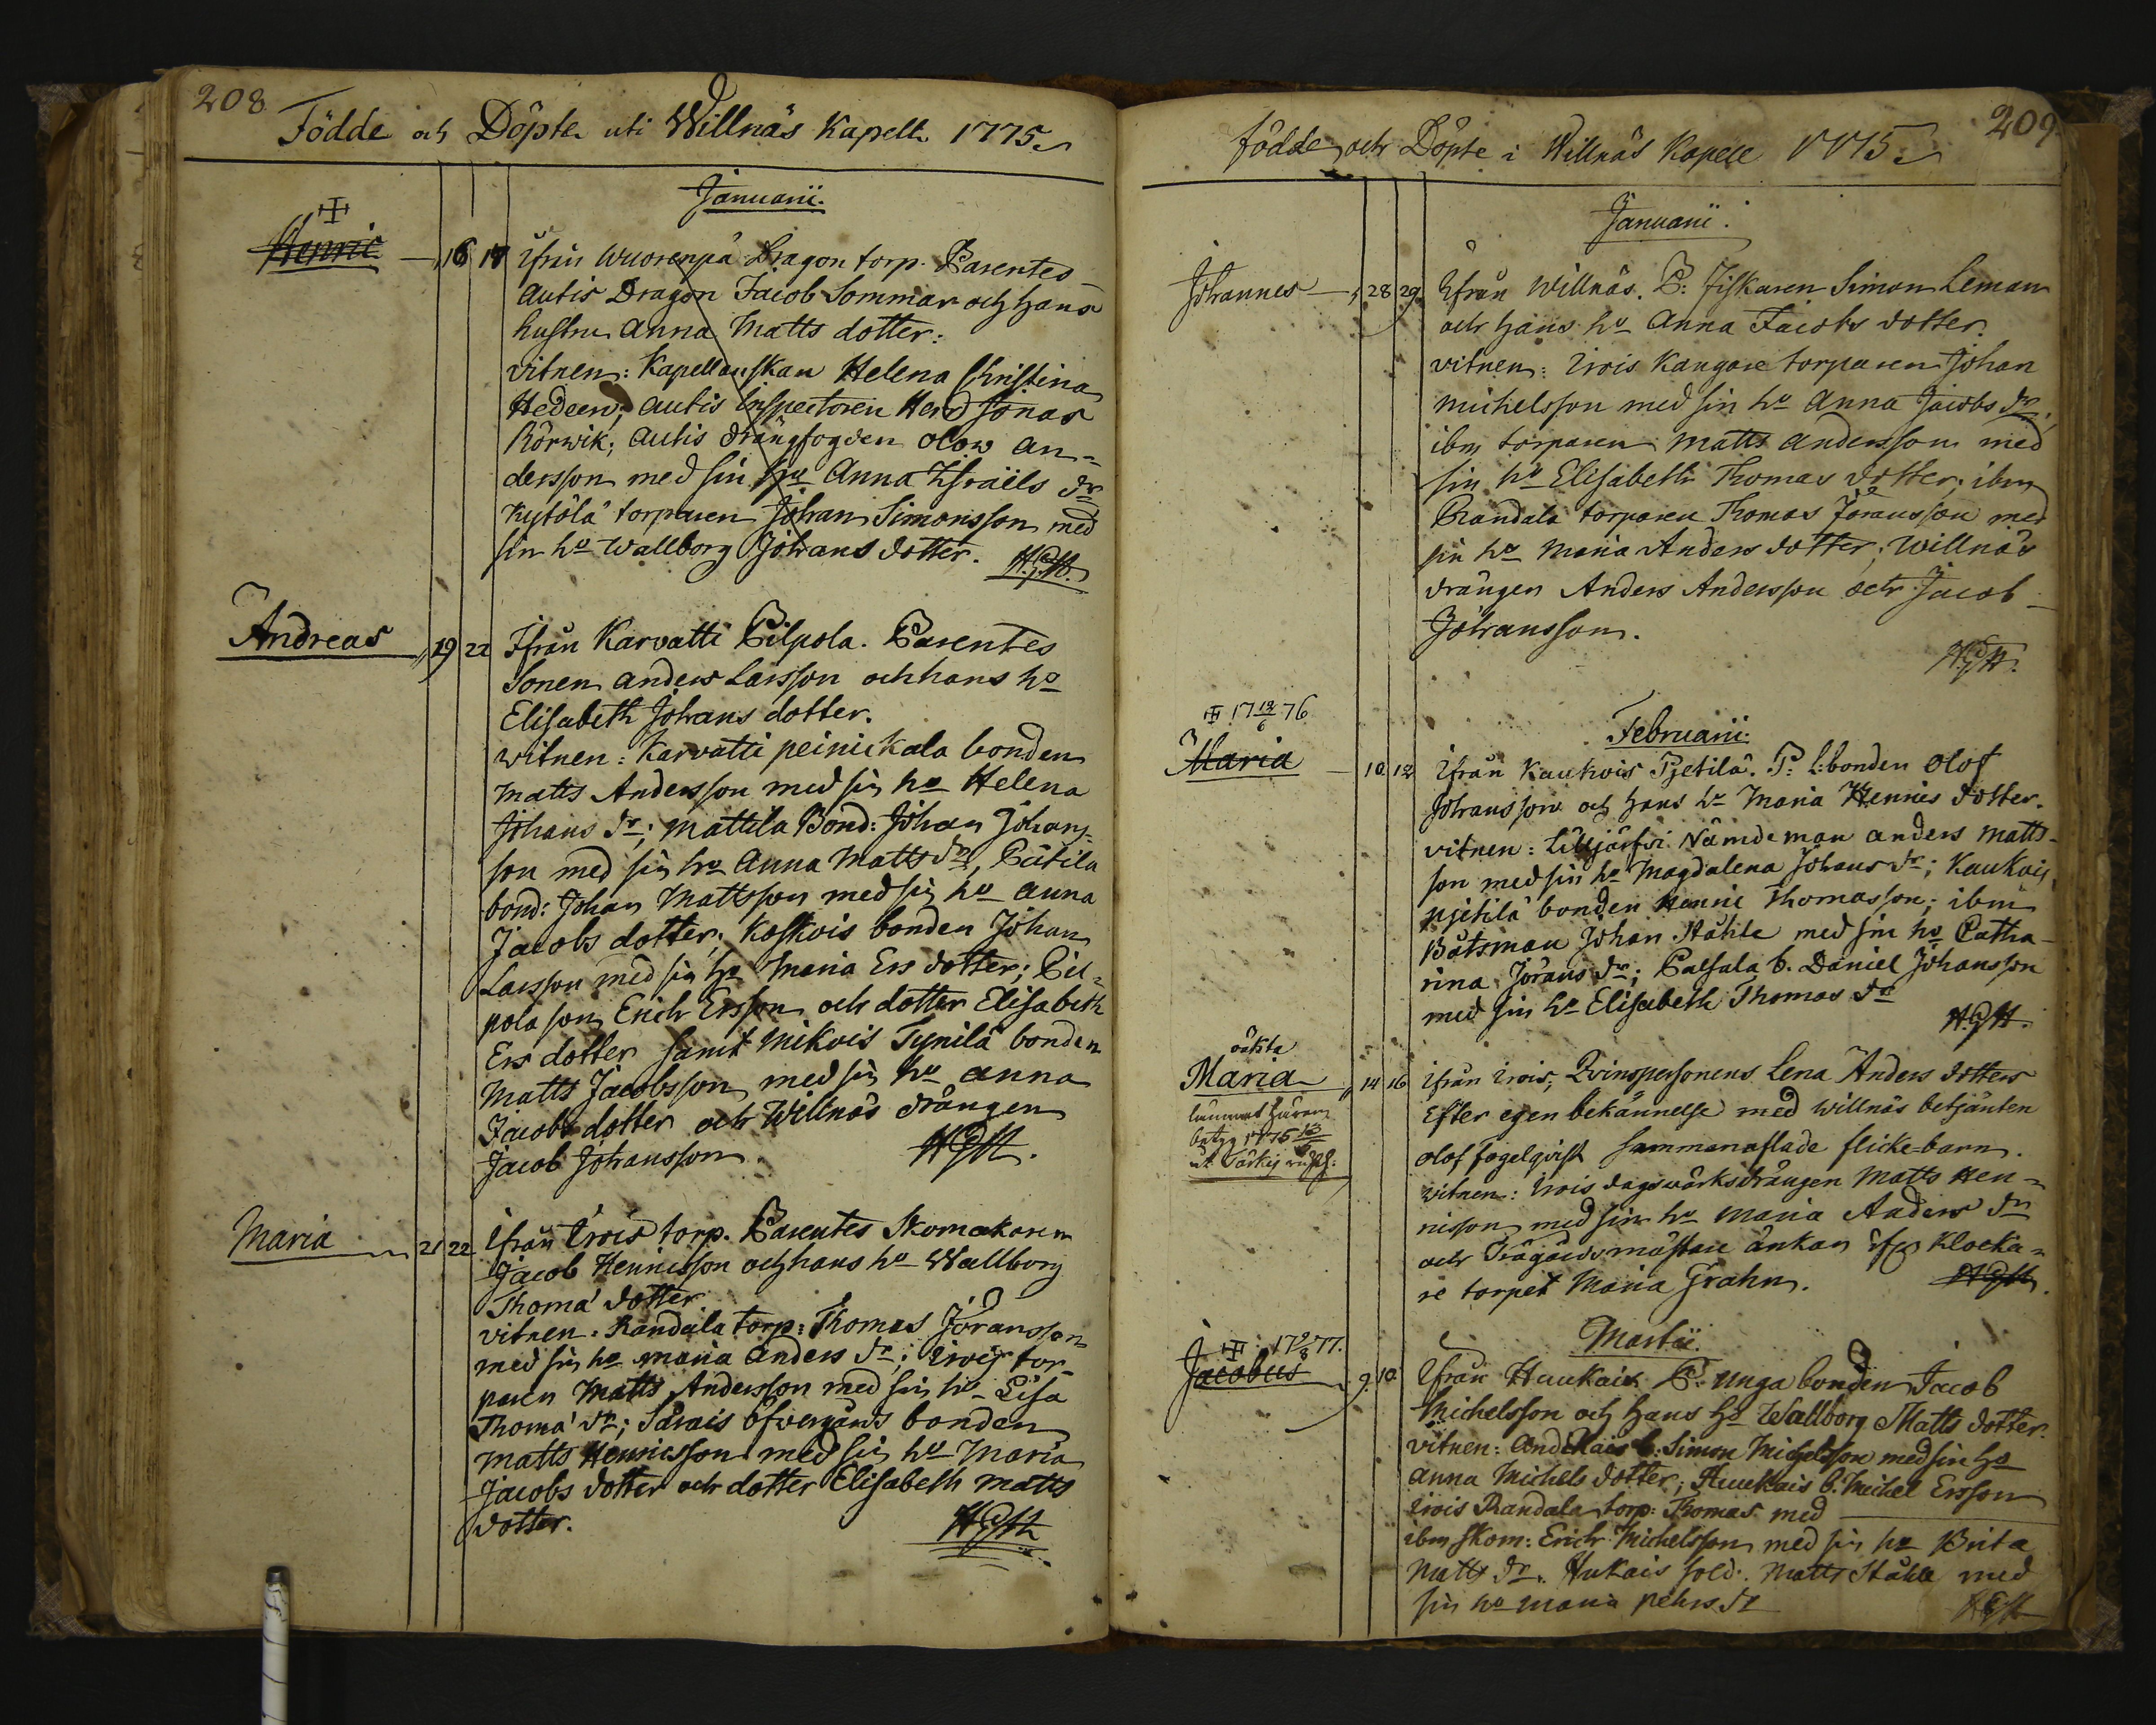 208
Födde och Döpte uti Willnäs Kapell 1775
Januarii.
Henric 16 17 ifrån Wuorenpä Dragon torp. Parentes
Autis Dragon Jacob Sommar och hans
hustru Anna Matts dotter.
vitnen: Kapellanskan Helena Christina
Hedeen; Autis Inspectoren Herr Jonas
Rörwik; Autis drängfogden Olow An=
dersson med sin hu Anna Israëls dr
Kytölä torparen Johan Simonsson med
sin hu Wallborg Johans dotter. HGH.
Andreas 19 22 Ifrån Karvatti Pilpola. Parentes
Sonen Anders Larsson och hans hu
Elisabeth Johans dotter.
witnen: Karvatti peinickala bonden
Matts Andersson med sin hu Helena
Johans dr; Mattila Bond: Johan Johans=
son med sin hu Anna Matts dr, Pätilä
bond: Johan Mattsson med sin hu Anna
Jacobs dotter; Koskois bonden Johan
Larsson med sin hu Maria Ers dotter; Pil=
pola son Erich Ersson och dotter Elisabeth
Ers dotter samt Mikois Tynilä bonden
Matts Jacobsson med sin hu Anna
Jacobs dotter och Willnäs drängen
Jacob Johansson. HGH.
Maria 21 22 Ifrån Irois torp. Parentes Skomakaren
Jacob Hennicsson och hans hu Wallborg
Thomæ dotter.
vitnen: Randala torp: Thomas Jöransson
med sin hu Maria Anders dr; Irois tor=
paren Matts Andersson med sin hu Lisa
Thomæ dr; Särais öfvergårds bonden
Matts Henricsson med sin hu Maria
Jacobs dotter och dotter Elisabeth Matts
dotter. HGH
209.
födde och Döpte i Willnäs Kapell 1775
Januarii.
Johannes 28 29 Ifrån Willnäs. P: Fiskaren Simon Leman
och hans hu Anna Jacobs dotter.
vitnen: Irois Kangare torparen Johan
Michelsson med sin hu Anna Jacobs dr,
ibm torparen Matts Andersson med
sin hu Elisabeth Thomas dotter; ibm
Randala torparen Thomas Jöransson med
sin hu Maria Anders dotter; Willnäs
drängen Anders Andersson och Jacob
Johansson.
HGH.
Februarii.
17 12/6 76
Maria 10 12 Ifrån Kaukois Pjetilä. P: L:bonden Olof
Johansson och hans hu Maria Hennics dotter.
vitnen: Nämdeman Anders Matts=
son med sin hu Magdalena Johans dr; Kaukois
pjetilä bonden Henric Thomasson; ibm
Båtsman Johan Ståhle med sin hu Catha=
rina Jörans dr; Palsala b. Daniel Johansson
med sin hu Elisabeth Thomas dr
HGH.
oäkta
Maria 14 16 Ifrån Irois, Qvinspersonens Lena Anders dotters
Efter egen bekännelse med Willnäs betjänten
Olof fogelqvist sammanaflade flicke=barn.
witnen: Irois dagswärksdrängen Matts Hen=
nisson med sin hu Maria Anders dr
och Trägårdsmästare änkan Klocka=
re torpet Maria Grahn. HGH.
Martii.
17 9/8 77.
Jacobus 9. 10. Ifrån Haukais. P: unga bonden Jacob
Michelsson och hans hu Wallborg Matts dotter.
vitnen: b: Simon Michelsson med sin hu
Anna Michels dotter; Haukais b: Michel Ersson
Irois Randala torp: Thomas med
ibm skom: Erich Michelsson med sin hu Brita
Matts dr. Hukais sold: Matts Ståhle med
sin hu Maria pehrs dr HGH